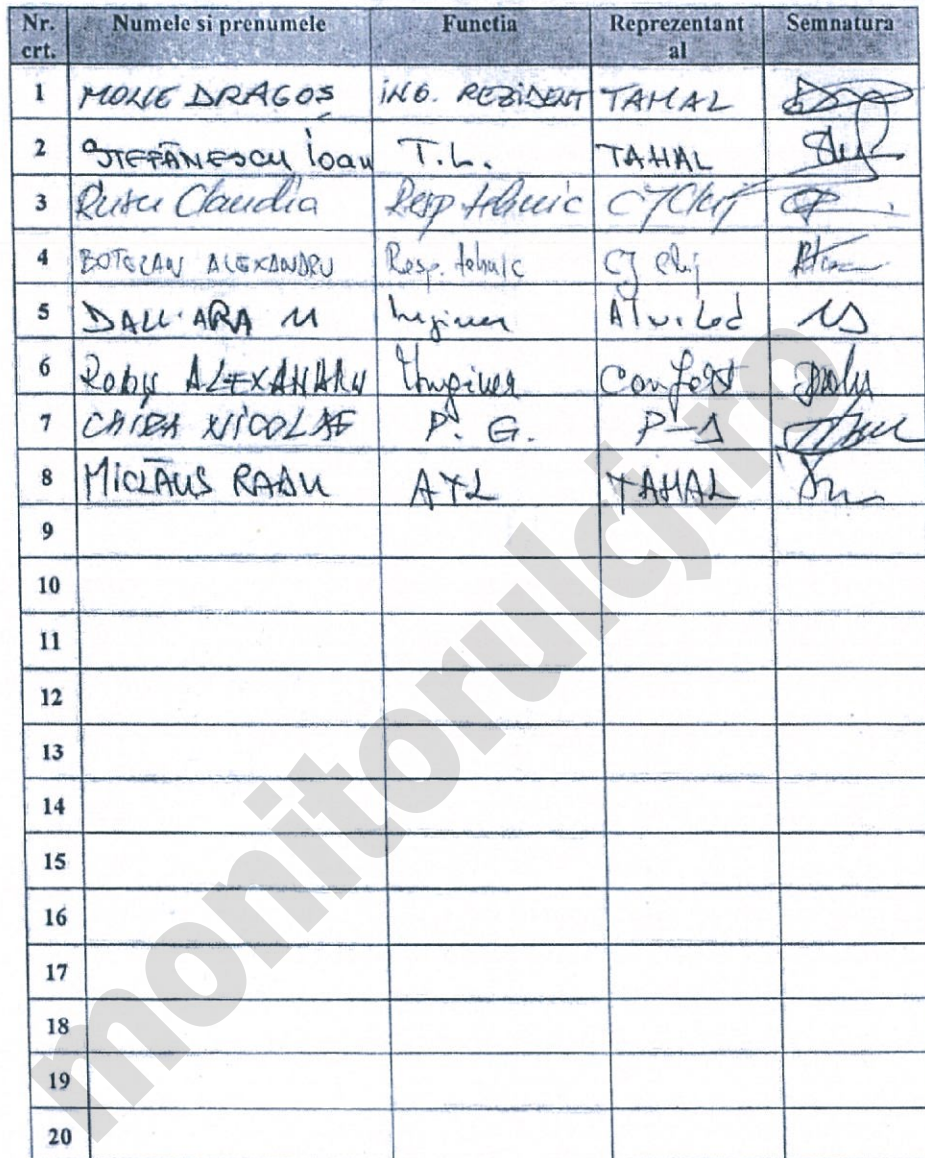 Nr. crt. Numele si prenumele Functia Reprezentant al Semnatura
1 MOLIE DRAGOȘ ING. REZIDENT TAHAL
2 ȘTEFĂNESCU Ioan T.L. TAHAL
3 Rusu Claudia Resp tehnic CJ Cluj
4 BOTEZAN ALEXANDRU Resp. tehnic CJ Cluj
5 DALL'ARA M Inginer
6 ALEXANDRU Inginer Confort
7 NICOLAE P. G. P-1
8 MICLĂUS RADU TAHAL
9
10
11
12
13
14
15
16
17
18
19
20
monitorulcj.ro